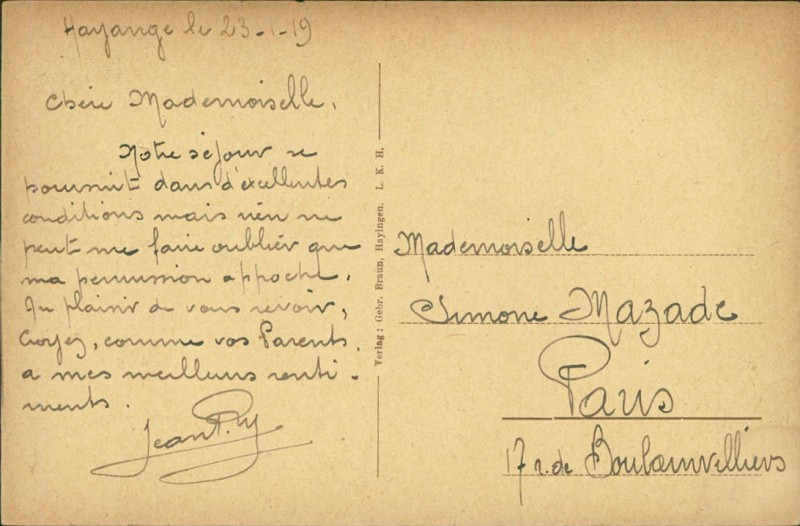 Hayange le 23-1-19
Chère Mademoiselle,
Notre séjour se
poursuit dans d'excellentes
conditions mais rien ne
peut me faire oublier que
ma permission approche.
Au plaisir de vous revoir,
Croyez, comme vos Parents,
a mes meilleurs senti-
ments.
Jean
Verlag: Gebr. Braun, Hayingen. L. K. H.
Mademoiselle
Simone Mazade
Paris
17 r. de Boulainvilliers